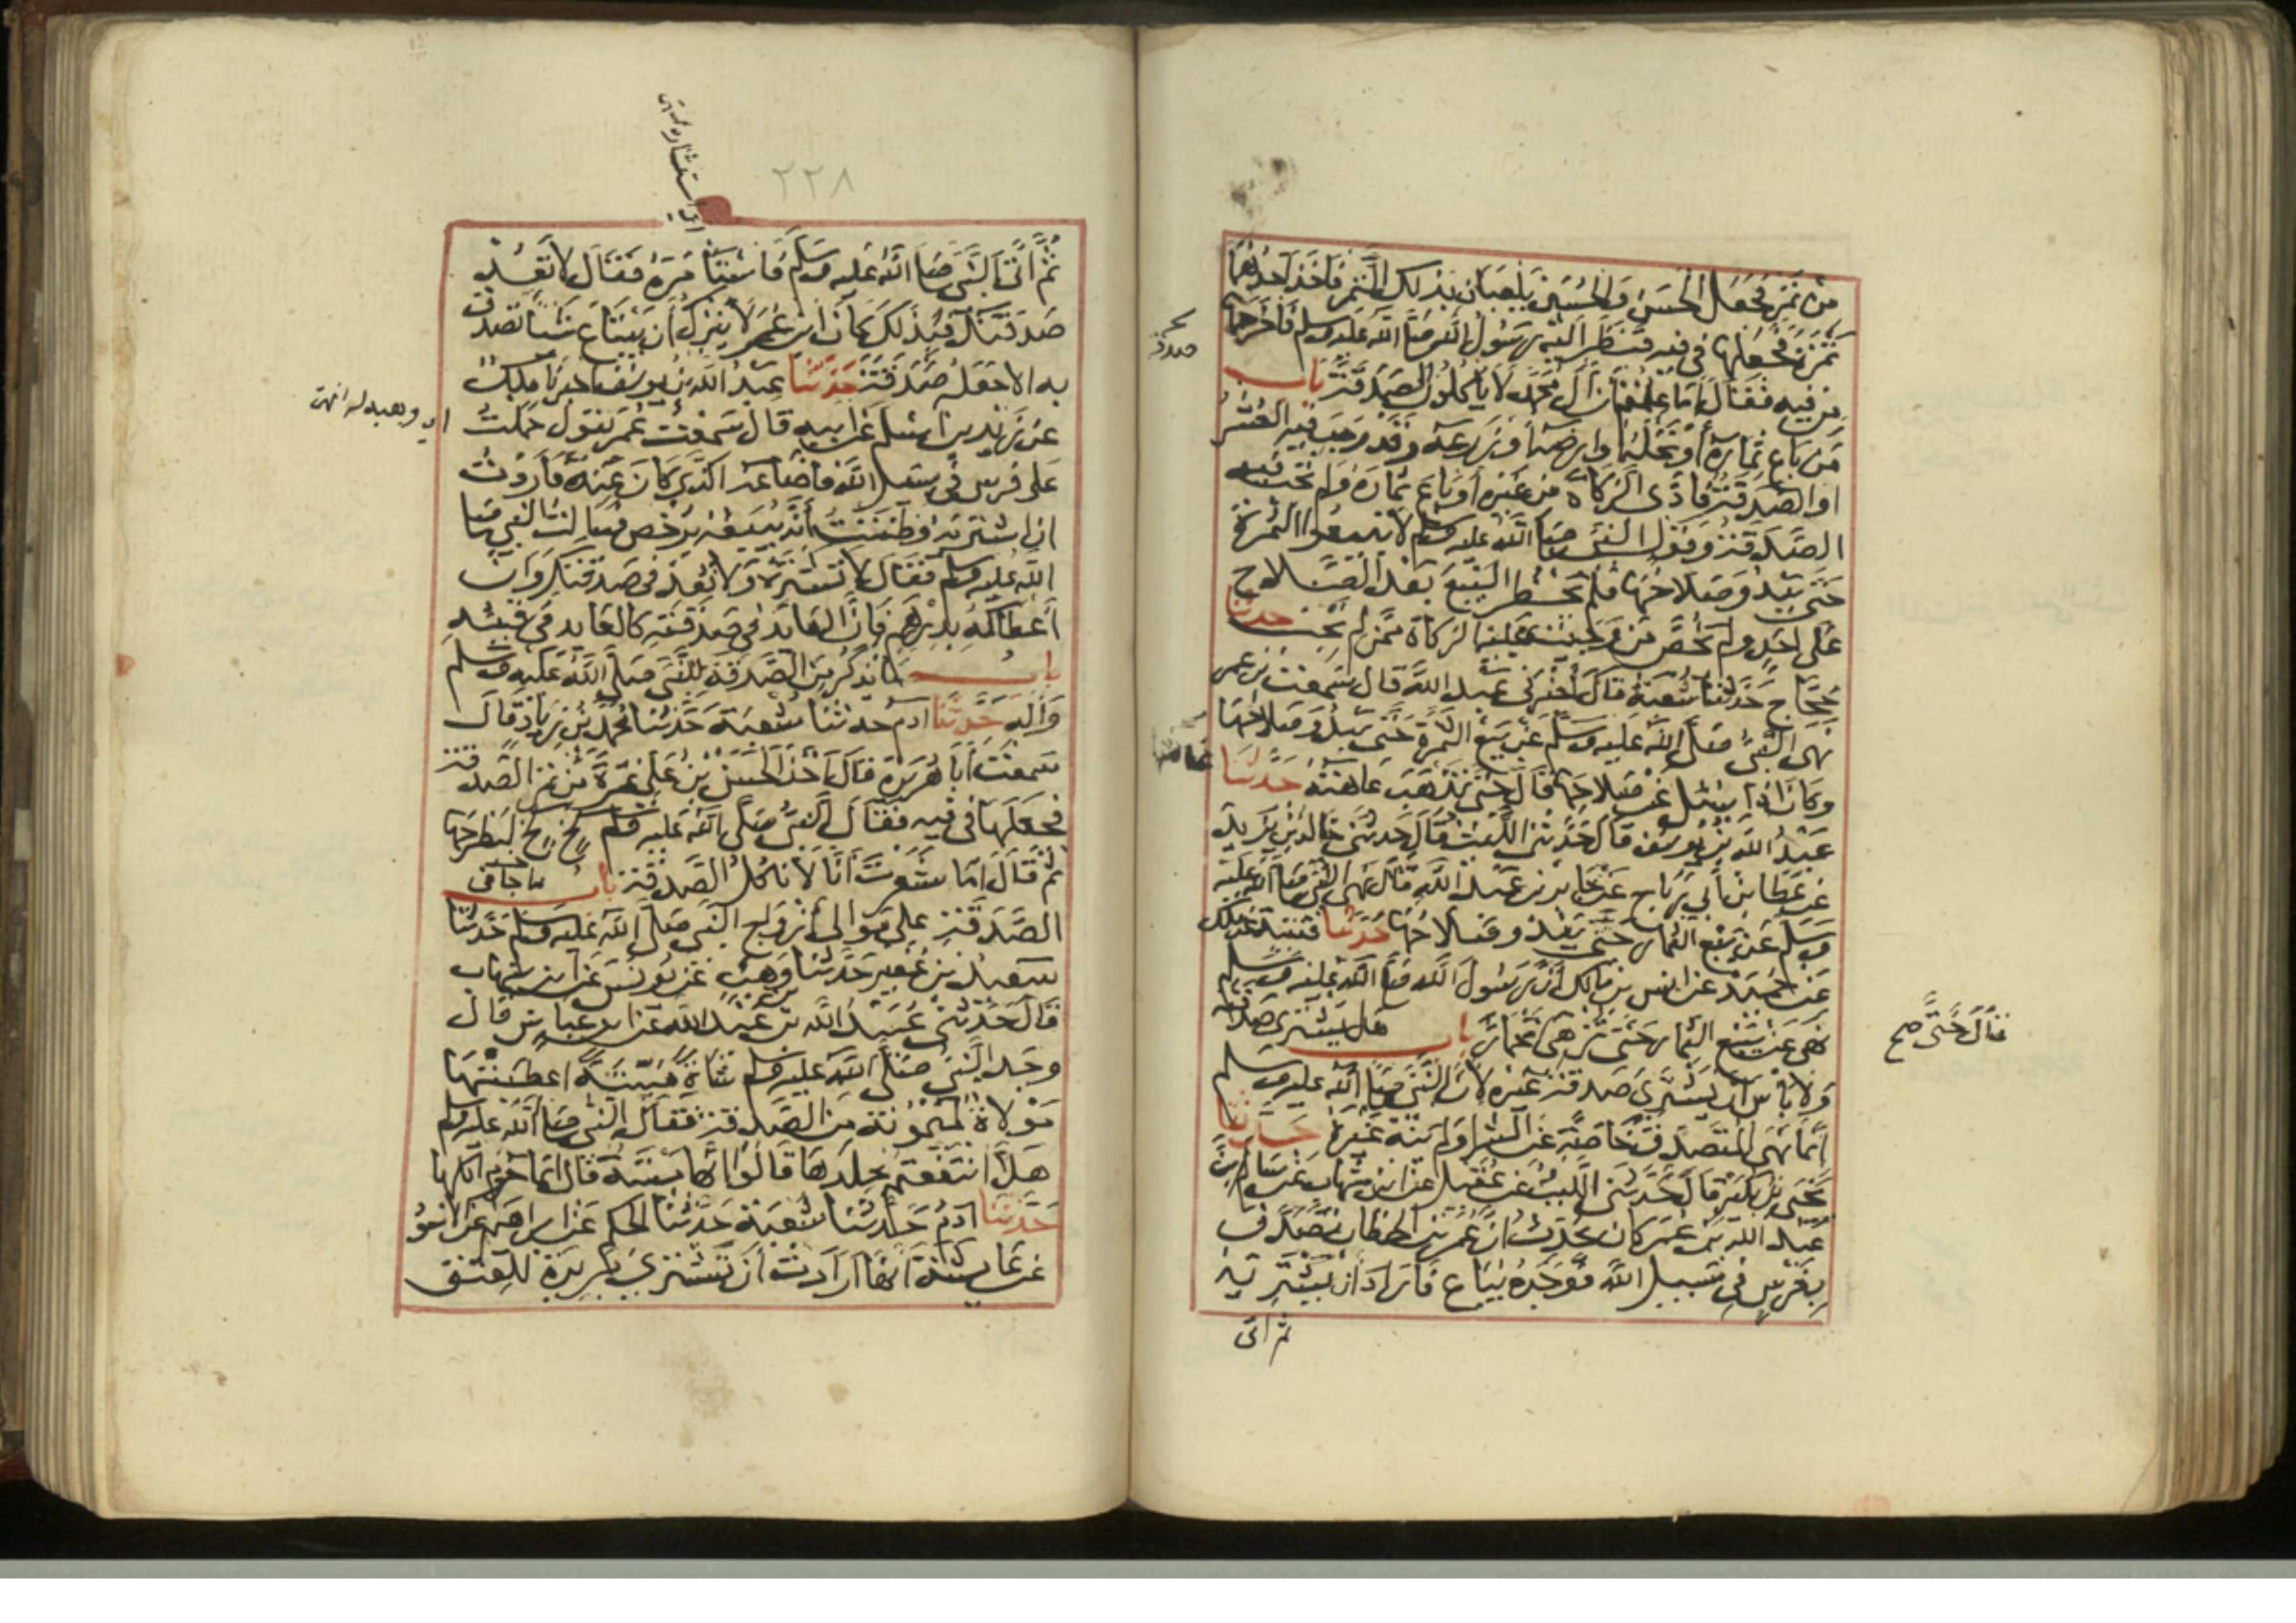 من تمر فجعل الحسن والحسين يلعبان بذلك التمر فأخذ أحدهما
تمرة فجعلها في فيه فنظر اليه رسول الله صلى الله عليه وسلم فأخرجها
من فيه فقال أما علمت أن آل محمد لا يأكلون الصدقة باب
من باع ثماره أو نخله أو ارضه أو زرعه وقد وجب فيه العشر
او الصدقة فأدى الزكاة من غيره أو باع ثماره ولم تجب فيه
الصدقة وقول النبي صلى الله عليه وسلم لا تبيعوا الثمرة
حتى يبدو صلاحها فلم يحظر البيع بعد الصلاح
على احد ولم يخص من وجبت عليه الزكاة ممن لم تجب حدثنا
حجاج حدثنا شعبة قال أخبرني عبد الله قال سمعت بن عمر
نهى النبي صلى الله عليه وسلم عن بيع الثمرة حتى يبدو صلاحها
وكان اذا سئل عن صلاحها قال حتى تذهب عاهته حدثنا
عبد الله بن يوسف قال حدثني الليث قال حدثني خالد بن يزيد
عن عطا بن أبي رباح عن جابر بن عبد الله قال نهى النبي صلى الله عليه
وسلم عن بيع الثمار حتى يبدو صلاحها حدثنا قتيبة عن مالك
عن حميد عن انس بن مالك أن رسول الله صلى الله عليه وسلم
نهى عن بيع الثمار حتى تزهى تحمار باب هل يشتري صدقته
ولا بأس أن يشتري صدقة غيره لأن النبي صلى الله عليه وسلم
انما نهى المتصدق خاصة عن الشرا ولم ينه غيره حدثنا
يحيى بن بكير قال حدثني الليث عن عقيل عن ابن شهاب عن سالم بن
عبد الله بن عمر كان يحدث أن عمر بن الخطاب تصدق
بفرس في سبيل الله فوجده يباع فأراد أن يشتريه
ثم اتى
قال حتى صح
٢٢٨
ثم أتى النبي صلى الله عليه وسلم فاستأمره فقال لا تعد في
صدقتك فبذلك كان ابن عمر لا يترك أن يبتاع شيئا تصدق
به الا جعله صدقة حدثنا عبد الله بن يوسف اخبرنا مالك
عن زيد بن اسلم عن ابيه قال سمعت عمر يقول حملت
على فرس في سبيل الله فأضاعه الذي كان عنده فأردت
ان اشتريه وظننت أنه يبيعه برخص فسالت النبي صلى
الله عليه وسلم فقال لا تشتره ولا تعد في صدقتك وان
أعطاكه بدرهم فان العائد في صدقته كالعايد في قيئه
باب ما يذكر من الصدقة للنبي صلى الله عليه وسلم
وآله حدثنا ادم حدثنا شعبة حدثنا محمد بن زياد قال
سمعت أبا هريرة قال أخذ الحسن بن علي تمرة من تمر الصدقة
فجعلها في فيه فقال النبي صلى الله عليه وسلم كخ كخ ليطرحها
ثم قال أما شعرت أنا لا نأكل الصدقة باب ما جا في
الصدقة على موالي أزواج النبي صلى الله عليه وسلم حدثنا
سعيد بن عفير حدثنا بن وهب عن يونس عن ابن شهاب
قال حدثني عبيد الله بن عبد الله عن ابن عباس قال
وجد النبي صلى الله عليه وسلم شاة ميتة اعطيتها
مولاة لميمونة من الصدقة فقال النبي صلى الله عليه وسلم
هلا انتفعتم بجلدها قالوا انها ميتة قال انما حرم اكلها
حدثنا ادم حدثنا شعبة حدثنا الحكم عن ابراهيم عن الاسود
عن عايشة أنها ارادت أن تشتري بريرة للعتق